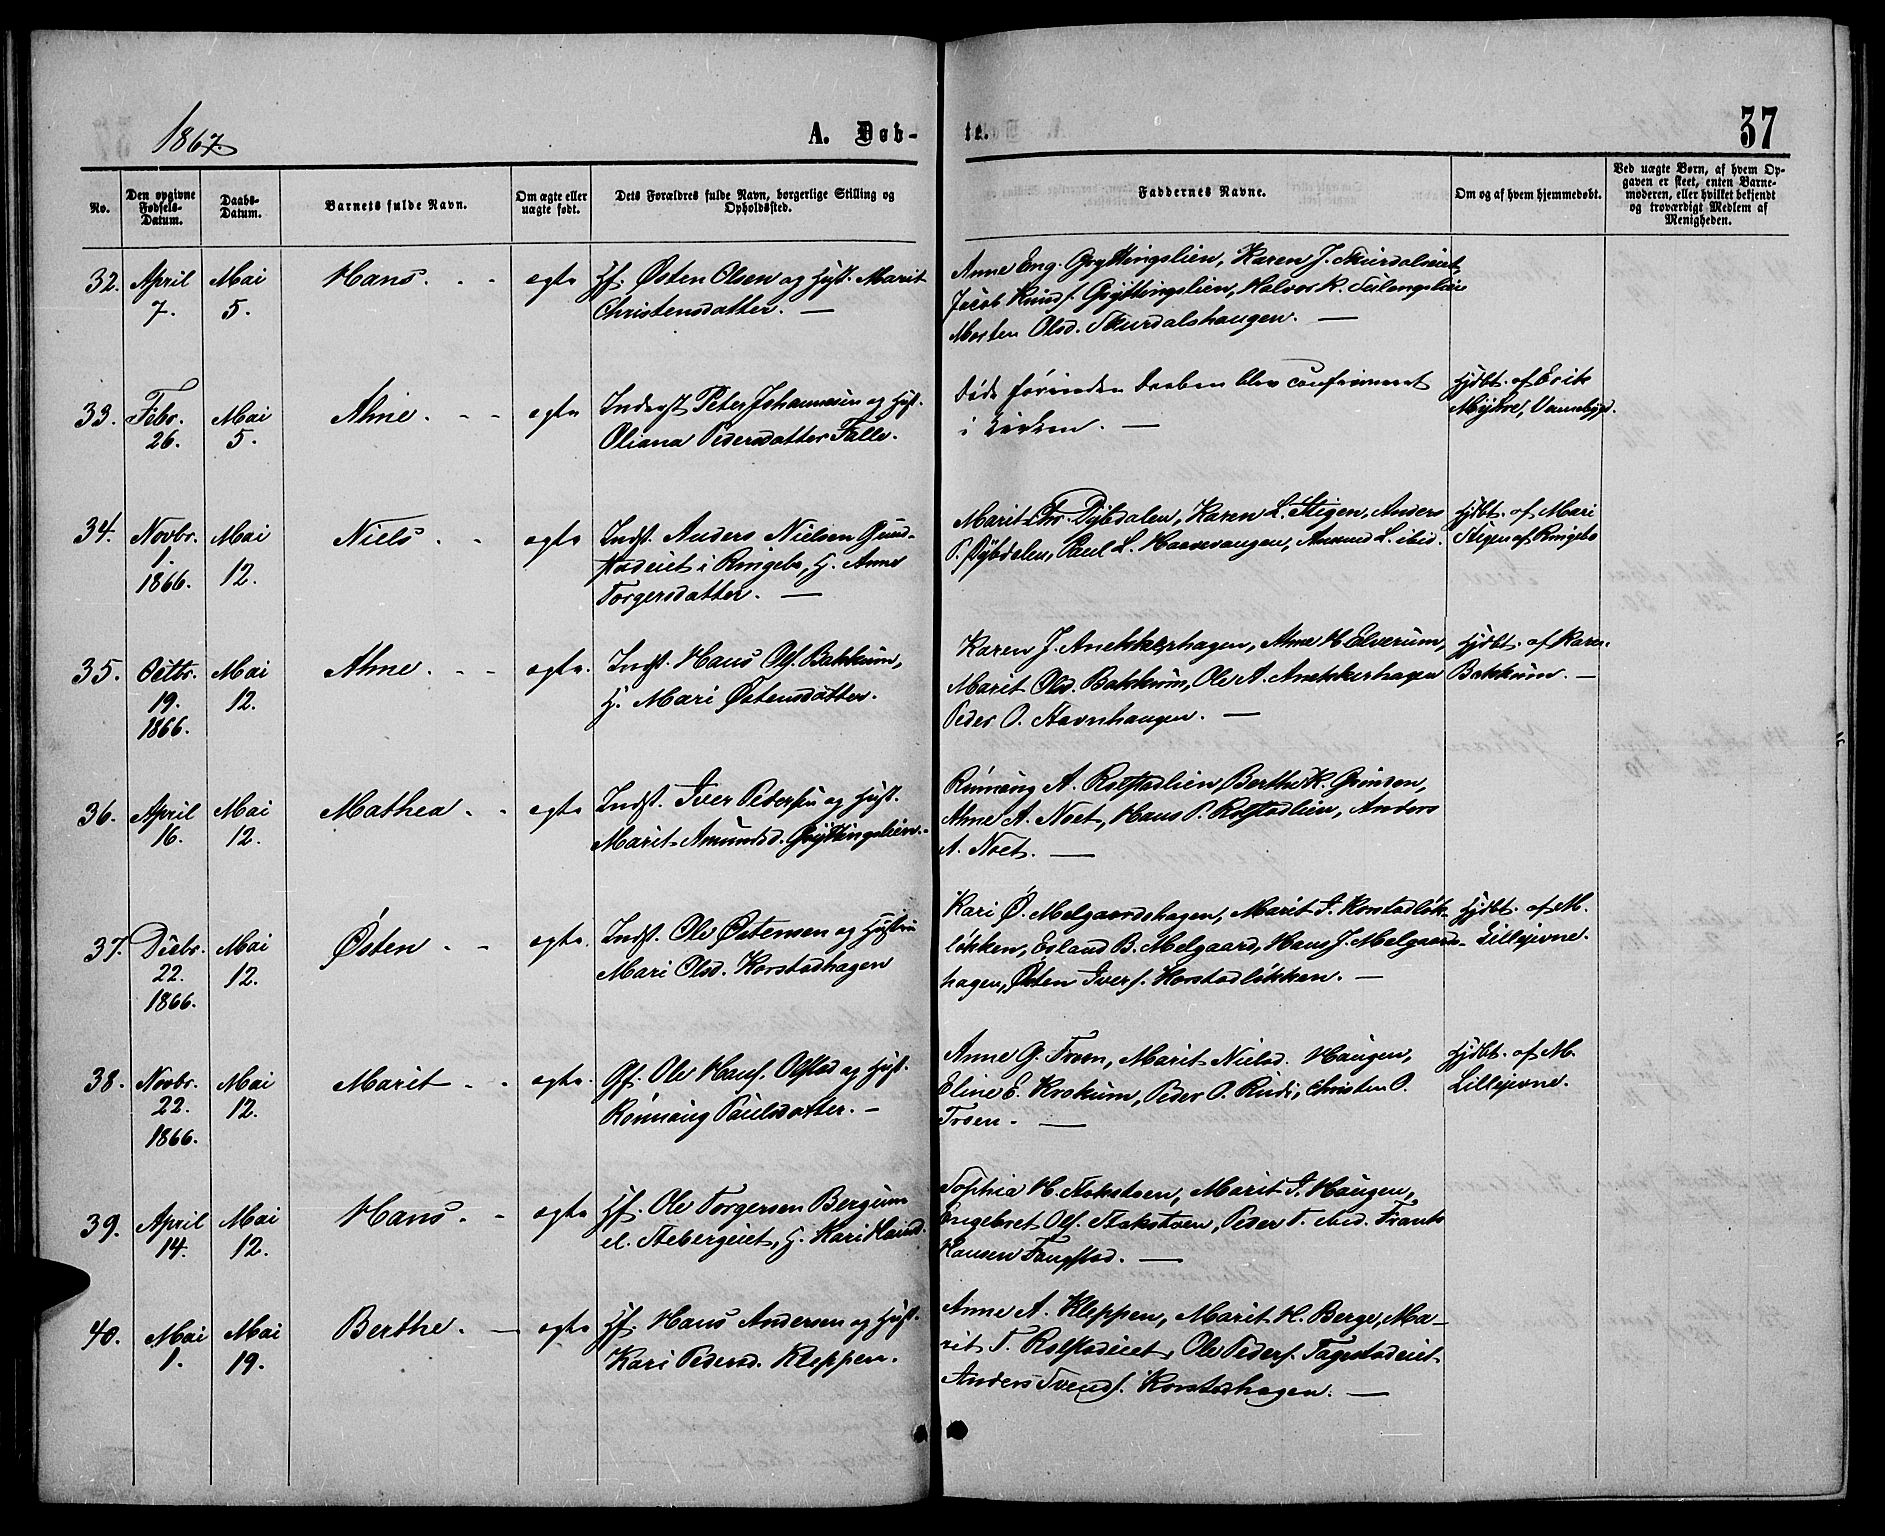 1867.
A. Døb-
te.
37
No.
Den opgivne Fødsels-Datum.
Daabs-Datum.
Barnets fulde Navn.
Om ægte eller uægte født.
Dets Forældres fulde Navn, borgerlige Stilling og Opholdssted.
Faddernes Navne.
Om og af hvem hjemmedøbt.
Ved uægte Børn, af hvem Op-
gaven er skeet, enten Barne-
moderen, eller hvilket bekjendt
og troværdigt Medlem af
Menigheden.
32. April 7. Mai 5. Hans. - - ægte
Hf. Østen Olsen og Hust. Marit
Christensdatter. —
Anne Eng. Gryttingslien, Karen J. Skurdalseiet,
Jacob Knuds. Gryttingslien, Halvor K.
Morten Olsd. Skurdalshaugen. —
33. Febr. 26. Mai 5. Anne. - - ægte
Inderst Peter Johannesen og Hust.
Oliana Pedersdatter Falle.
Døde forinden Daaben blev confirmeret
i Kirken. —
Hjdbt. af Erik
Myhre, Vennebygd.
34. Novbr. 1. 1866. Mai 12. Niels. - ægte
Indst. Anders Nielsen Gund-
stadeiet i Ringebo, H. Anne
Torgersdatter. —
Marit Chr. Dybdalen, Karen L. Stigen, Anders
P. Dybdalen, Paul L. Haavevangen, Amund L. ibid.
Hjdbt. af Mari
Stigen af Ringebo
35. Octbr. 19. 1866. Mai 12. Anne. - - ægte.
Indst. Hans Ols. Bakkum,
H. Mari Østensdatter.
Karen J. Anekkerhagen, Anne H. Elverum,
Marit Olsd. Bakkum, Ole A. Anekkerhagen
Peder O. Stavnhaugen. —
Hjdbt. af Karen
Bakkum. —
36. April 16. Mai 12. Mathea. - ægte
Indst. Iver Pedersen og Hust.
Marit Amundsd. Gryttingslien.
Rønnaug A. Rolstadlien, Berthe K. Grimsen,
Anne A. Noet, Hans P. Rolstadlien, Anders
A. Noet. —
37. Decbr. 22. 1866. Mai 12. Østen - - ægte.
Indst. Ole Østensen og Hustru
Mari Olsd. Korstadhagen
Kari Ø. Melgaardshagen, Marit I. Korstadløk-
løkken, Erland B. Melgaard, Hans J. Melgaards-
hagen, Østen Ivers. Korstadløkken. —
Hjdbt. af M.
Lillejevne.
38. Novbr. 22. 1866. Mai 12. Marit - - ægte.
Gf. Ole Hans. Olstad og Hust.
Rønnaug Paulsdatter. —
Anne G. Troen, Marit Nielsd. Haugen,
Eline E. Krokum, Peder O. Rudi, Christen O.
Troen. —
Hjdbt. af M.
Lillejevne.
39. April 14. Mai 12. Hans. - ægte
Hf. Ole Torgersen Bergum
el. Stebergeiet, H. Kari Hansd.
Sophia H. Stokstoen, Marit I. Haugen,
Engebret Ols. Stokstoen, Peder T. ibid. Frants
Hansen Faugstad. —
40. Mai 1. Mai 19. Berthe. - ægte
Hf. Hans Andersen og Hust.
Kari Pedersd. Kleppen.
Anne A. Kleppen, Marit H. Berge, Ma-
rit T. Rolstadeiet, Ole Peders. Fagstadeiet
Anders Svends. Korstadhagen. —